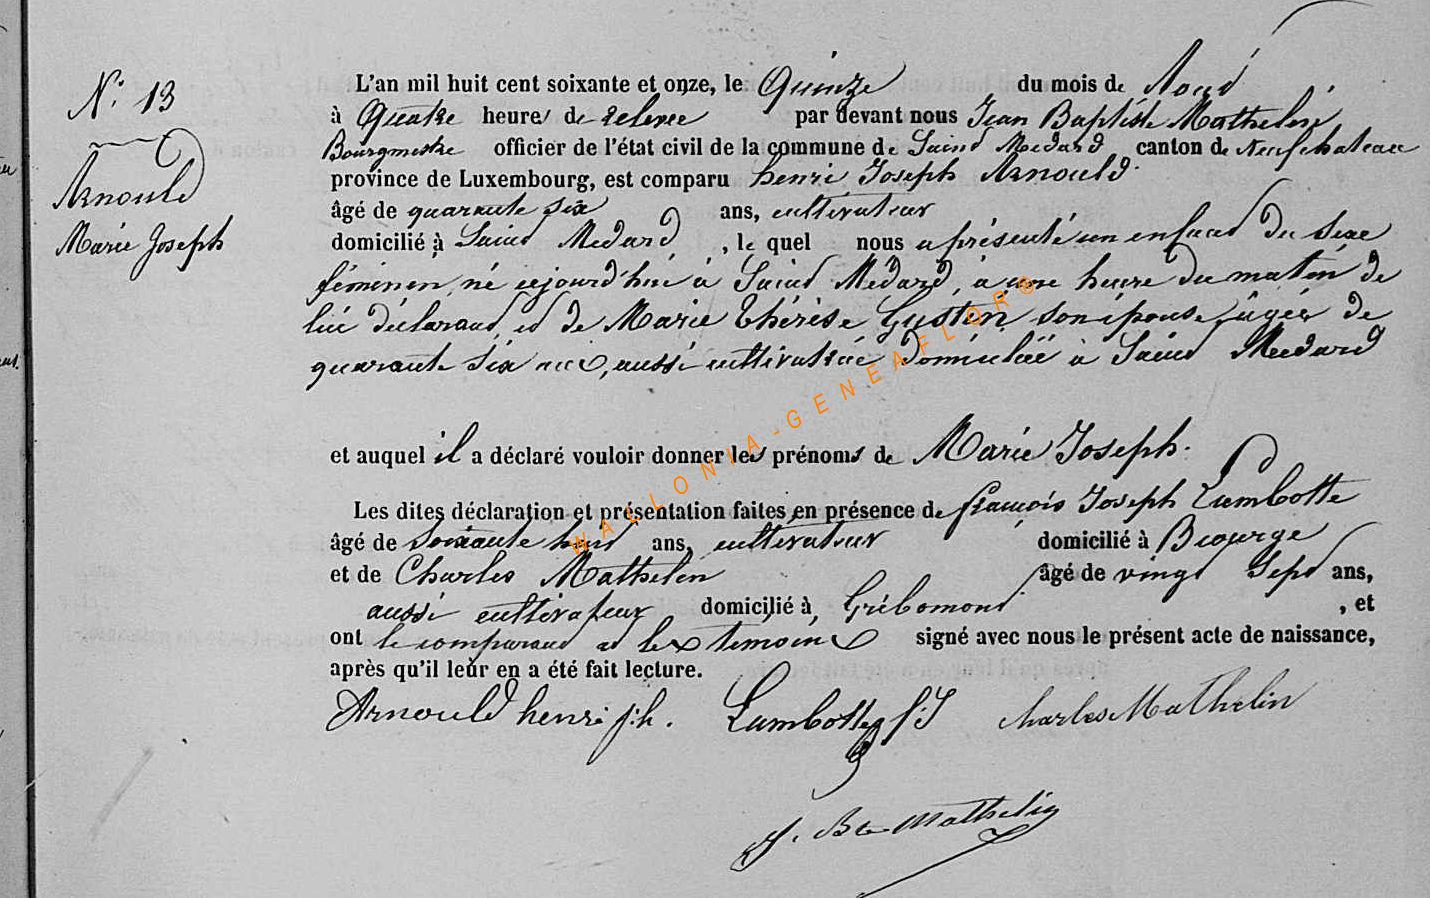 N° 13
Arnould
Marie Joseph
L'an mil huit cent soixante et onze, le Quinze du mois de Août
à Quatre heures de relevée par devant nous Jean Baptiste Mathelin
Bourgmestre officier de l'état civil de la commune de Saint Médard canton de Neufchateau
province de Luxembourg, est comparu henri Joseph Arnould
âgé de quarante six ans, cultivateur
domicilié à Saint Medard, le quel nous a présenté un enfant du sexe
féminin, né cejourd'hui à Saint Médard, à une heure du matin de
lui déclarant et de Marie Thérèse Gustin son épouse, âgée de
quarante six ans, aussi cultivatrice domiciliée à Saint Medard
et auquel il a déclaré vouloir donner les prénoms de Marie Joseph.
Les dites déclaration et présentation faites en présence de françois Joseph Lambotte
âgé de soixante huit ans, cultivateur domicilié à Biourge
et de Charles Mathelin âgé de vingt Sept ans,
aussi cultivateur domicilié à Gribomont, et
ont le comparant et les temoins signé avec nous le présent acte de naissance,
après qu'il leur en a été fait lecture.
Arnould henri j.h. Lambotte f J Charles Mathelin
J. Bte Mathelin
WALLONIA-GENEAFLOR®